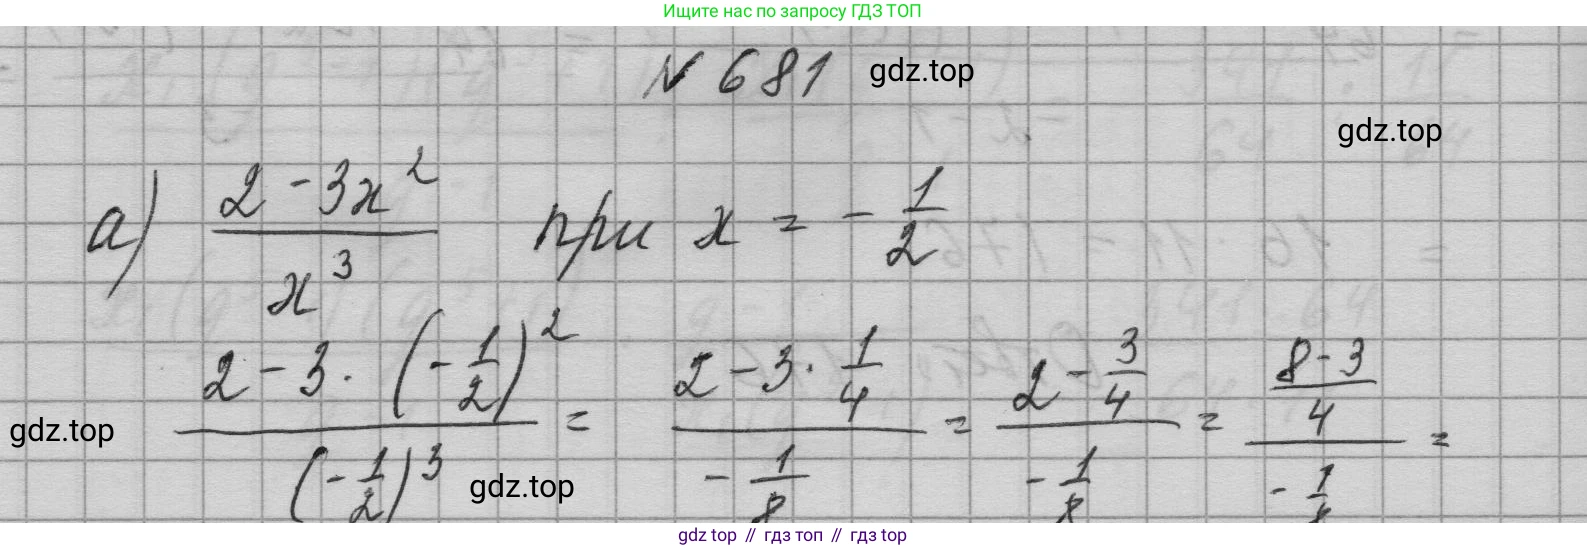 Ищите нас по запросу ГДЗ ТОП
№ 681 gdz.top
gdz.top
а) (2 - 3x²)/x³ при x = - 1/2
gdz.top (2 - 3 · (- 1/2)²)/(- 1/2)³ = (2 - 3 · 1/4)/(- 1/8) = (2 - 3/4)/(- 1/8) = ((8 - 3)/4)/(- 1/8) =
gdz.top
gdz top // гдз топ // гдз top